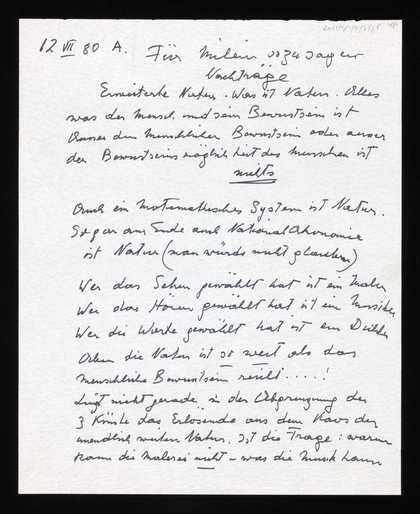 12 VII 80 A. Für Milein sozusagen
Nachträge
Erweiterte Natur. Was ist Natur. Alles
was der Mensch und sein Bewustsein ist
Ausser dem Menschlichen Bewustsein oder ausser
der Bewustseinsmöglichkeit des Menschen ist
nichts
Auch ein Matematisches System ist Natur.
Sogar am Ende auch Nationalökonomie
ist Natur (man würde nicht glauben)
Wer das Sehen gewählt hat ist ein Maler
Wer das Hören gewählt hat ist ein Musiker
Wer die Worte gewählt hat ist ein Dichter
Aber die Natur ist so weit als das
menschliche Bewustsein reicht....!
Liegt nicht gerade in der Abgrenzung der
3 Künste das Erlösende aus dem Kaos der
unendlich weiten Natur. Ist die Frage: warum
kann die Malerei nicht – was die Musik kann